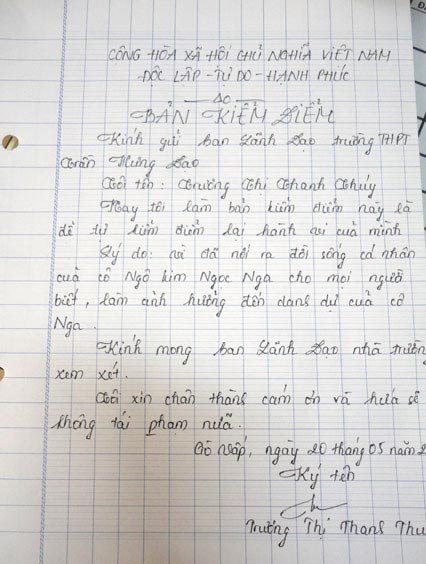 CÔNG HÒA XÃ HÔI CHỦ NGHĨA VIẾT NAM
ĐỘC LẬP - TỰ DO - HẠNH PHÚC
BẢN KIỂM ĐIỂM
Kính gửi ban Lãnh Đạo trường THPT
Trần Hưng Đạo
Tôi tên : Trương Thị Thanh Thúy
Nay tôi làm bản kiểm điểm này là
để tự kiểm điểm lại hành vi cuả mình
Lý do: vì đã nói ra đời sống cá nhân
cuả cô Ngô Kim Ngọc Nga cho mọi người
biết, làm ảnh hưởng đến danh dự cuả cô
Nga.
Kính mong ban Lãnh Đạo nhà trường
xem xét.
Tôi xin chân thành cảm ơn và hứa sẽ
không tái phạm nữa.
Gò Vấp, ngày 20 tháng 05 năm 2
Ký tên
Trương Thị Thanh Thu